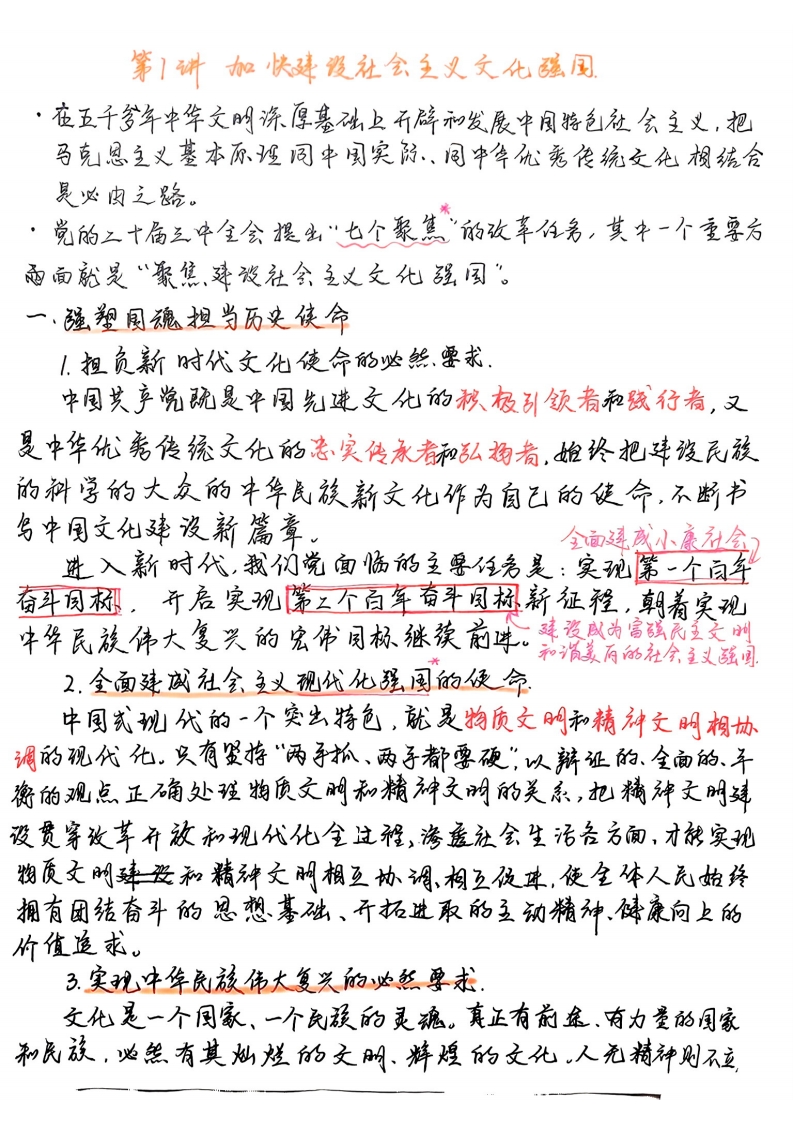 第1讲 加快建设社会主义文化强国
·在五千多年中华文明深厚基础上开辟和发展中国特色社会主义,把
马克思主义基本原理同中国实际、同中华优秀传统文化相结合
是必由之路。
·党的二十届三中全会提出“七个聚焦*”的改革任务,其中一个重要方
面就是“聚焦建设社会主义文化强国”。
一、强塑国魂担当历史使命
1.担负新时代文化使命的必然要求.
中国共产党既是中国先进文化的积极引领者和践行者,又
是中华优秀传统文化的忠实传承者和弘扬者,始终把建设民族
的科学的大众的中华民族新文化作为自己的使命,不断书
写中国文化建设新篇章。
全面建成小康社会
进入新时代,我们党面临的主要任务是:实现第一个百年
奋斗目标,开启实现第二个百年奋斗目标新征程,朝着实现
中华民族伟大复兴的宏伟目标继续前进。
建设成为富强民主文明
和谐美丽的社会主义强国.
2.全面建成社会主义现代化强国*的使命.
中国式现代的一个突出特色,就是物质文明和精神文明相协
调的现代化。只有坚持“两手抓、两手都要硬”,以辩证的、全面的、平
衡的观点正确处理物质文明和精神文明的关系,把精神文明建
设贯穿改革开放和现代化全过程,渗透社会生活各方面,才能实现
物质文明建设和精神文明相互协调、相互促进,使全体人民始终
拥有团结奋斗的思想基础、开拓进取的主动精神、健康向上的
价值追求。
3.实现中华民族伟大复兴的必然要求.
文化是一个国家、一个民族的灵魂。真正有前途、有力量的国家
和民族,必然有其灿烂的文明、辉煌的文化。人无精神则不立,